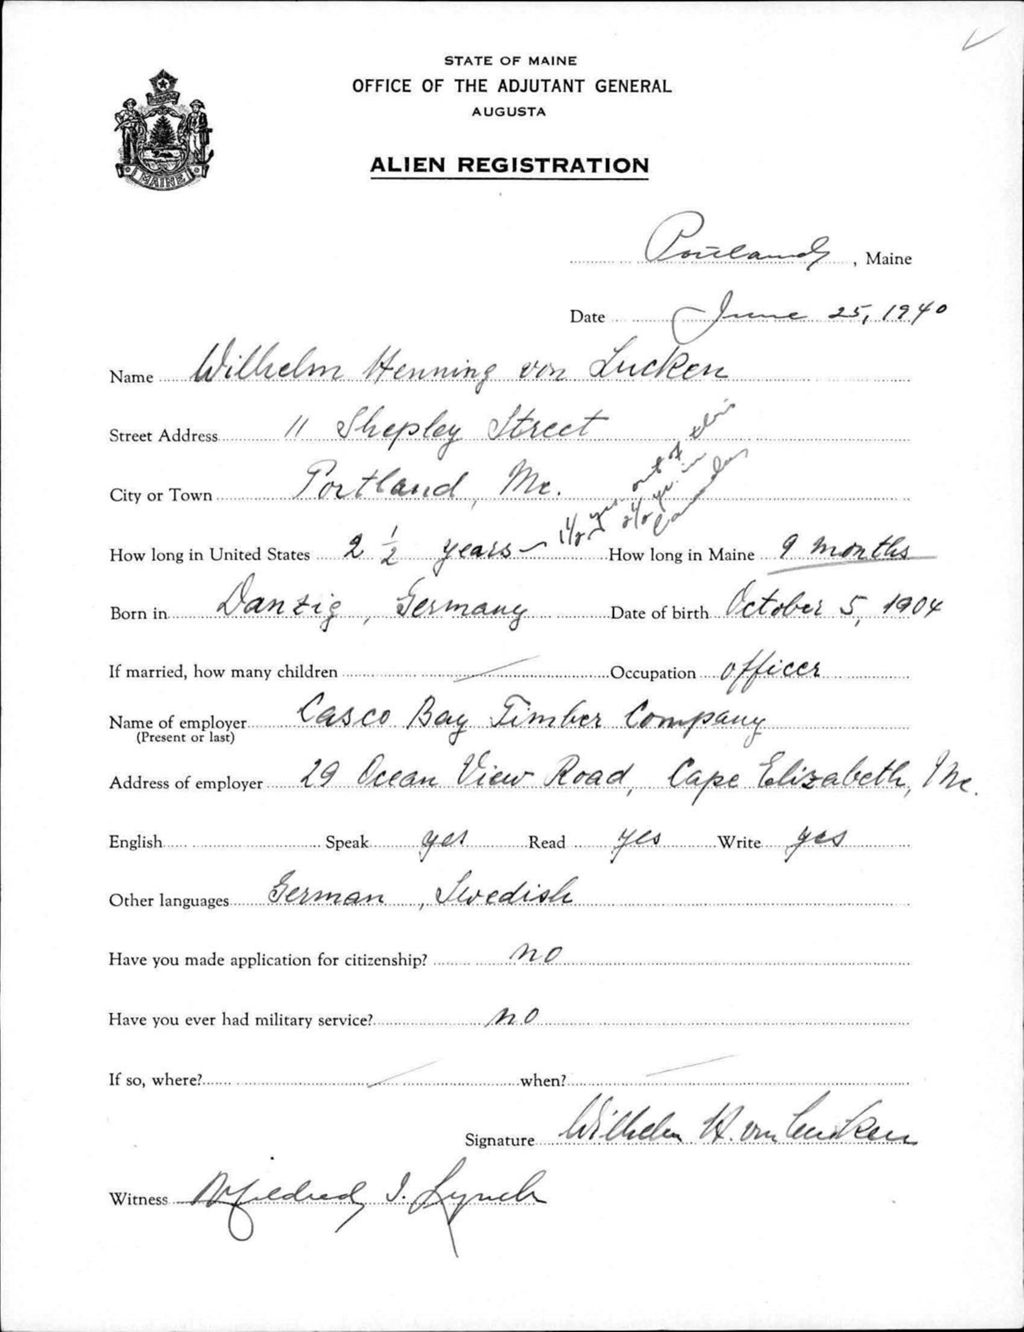 STATE OF MAINE
OFFICE OF THE ADJUTANT GENERAL
AUGUSTA
MAINE
ALIEN REGISTRATION
Portland, Maine
Date June 25, 1940
Name Wilhelm Henning von Lucken
Street Address 11 Shepley Street
City or Town Portland, Me.
yrs. out of this
yr. in
Canada
How long in United States 2 1/2 years How long in Maine 9 months
Born in Danzig, Germany Date of birth October 5, 1904
If married, how many children Occupation officer
Name of employer Casco Bay Timber Company
(Present or last)
Address of employer 29 Ocean View Road, Cape Elizabeth, Me.
English Speak yes Read yes Write yes
Other languages German, Swedish
Have you made application for citizenship? no
Have you ever had military service? no
If so, where? when?
Signature Wilhelm H. von Lucken
Witness Mildred I. Lynch